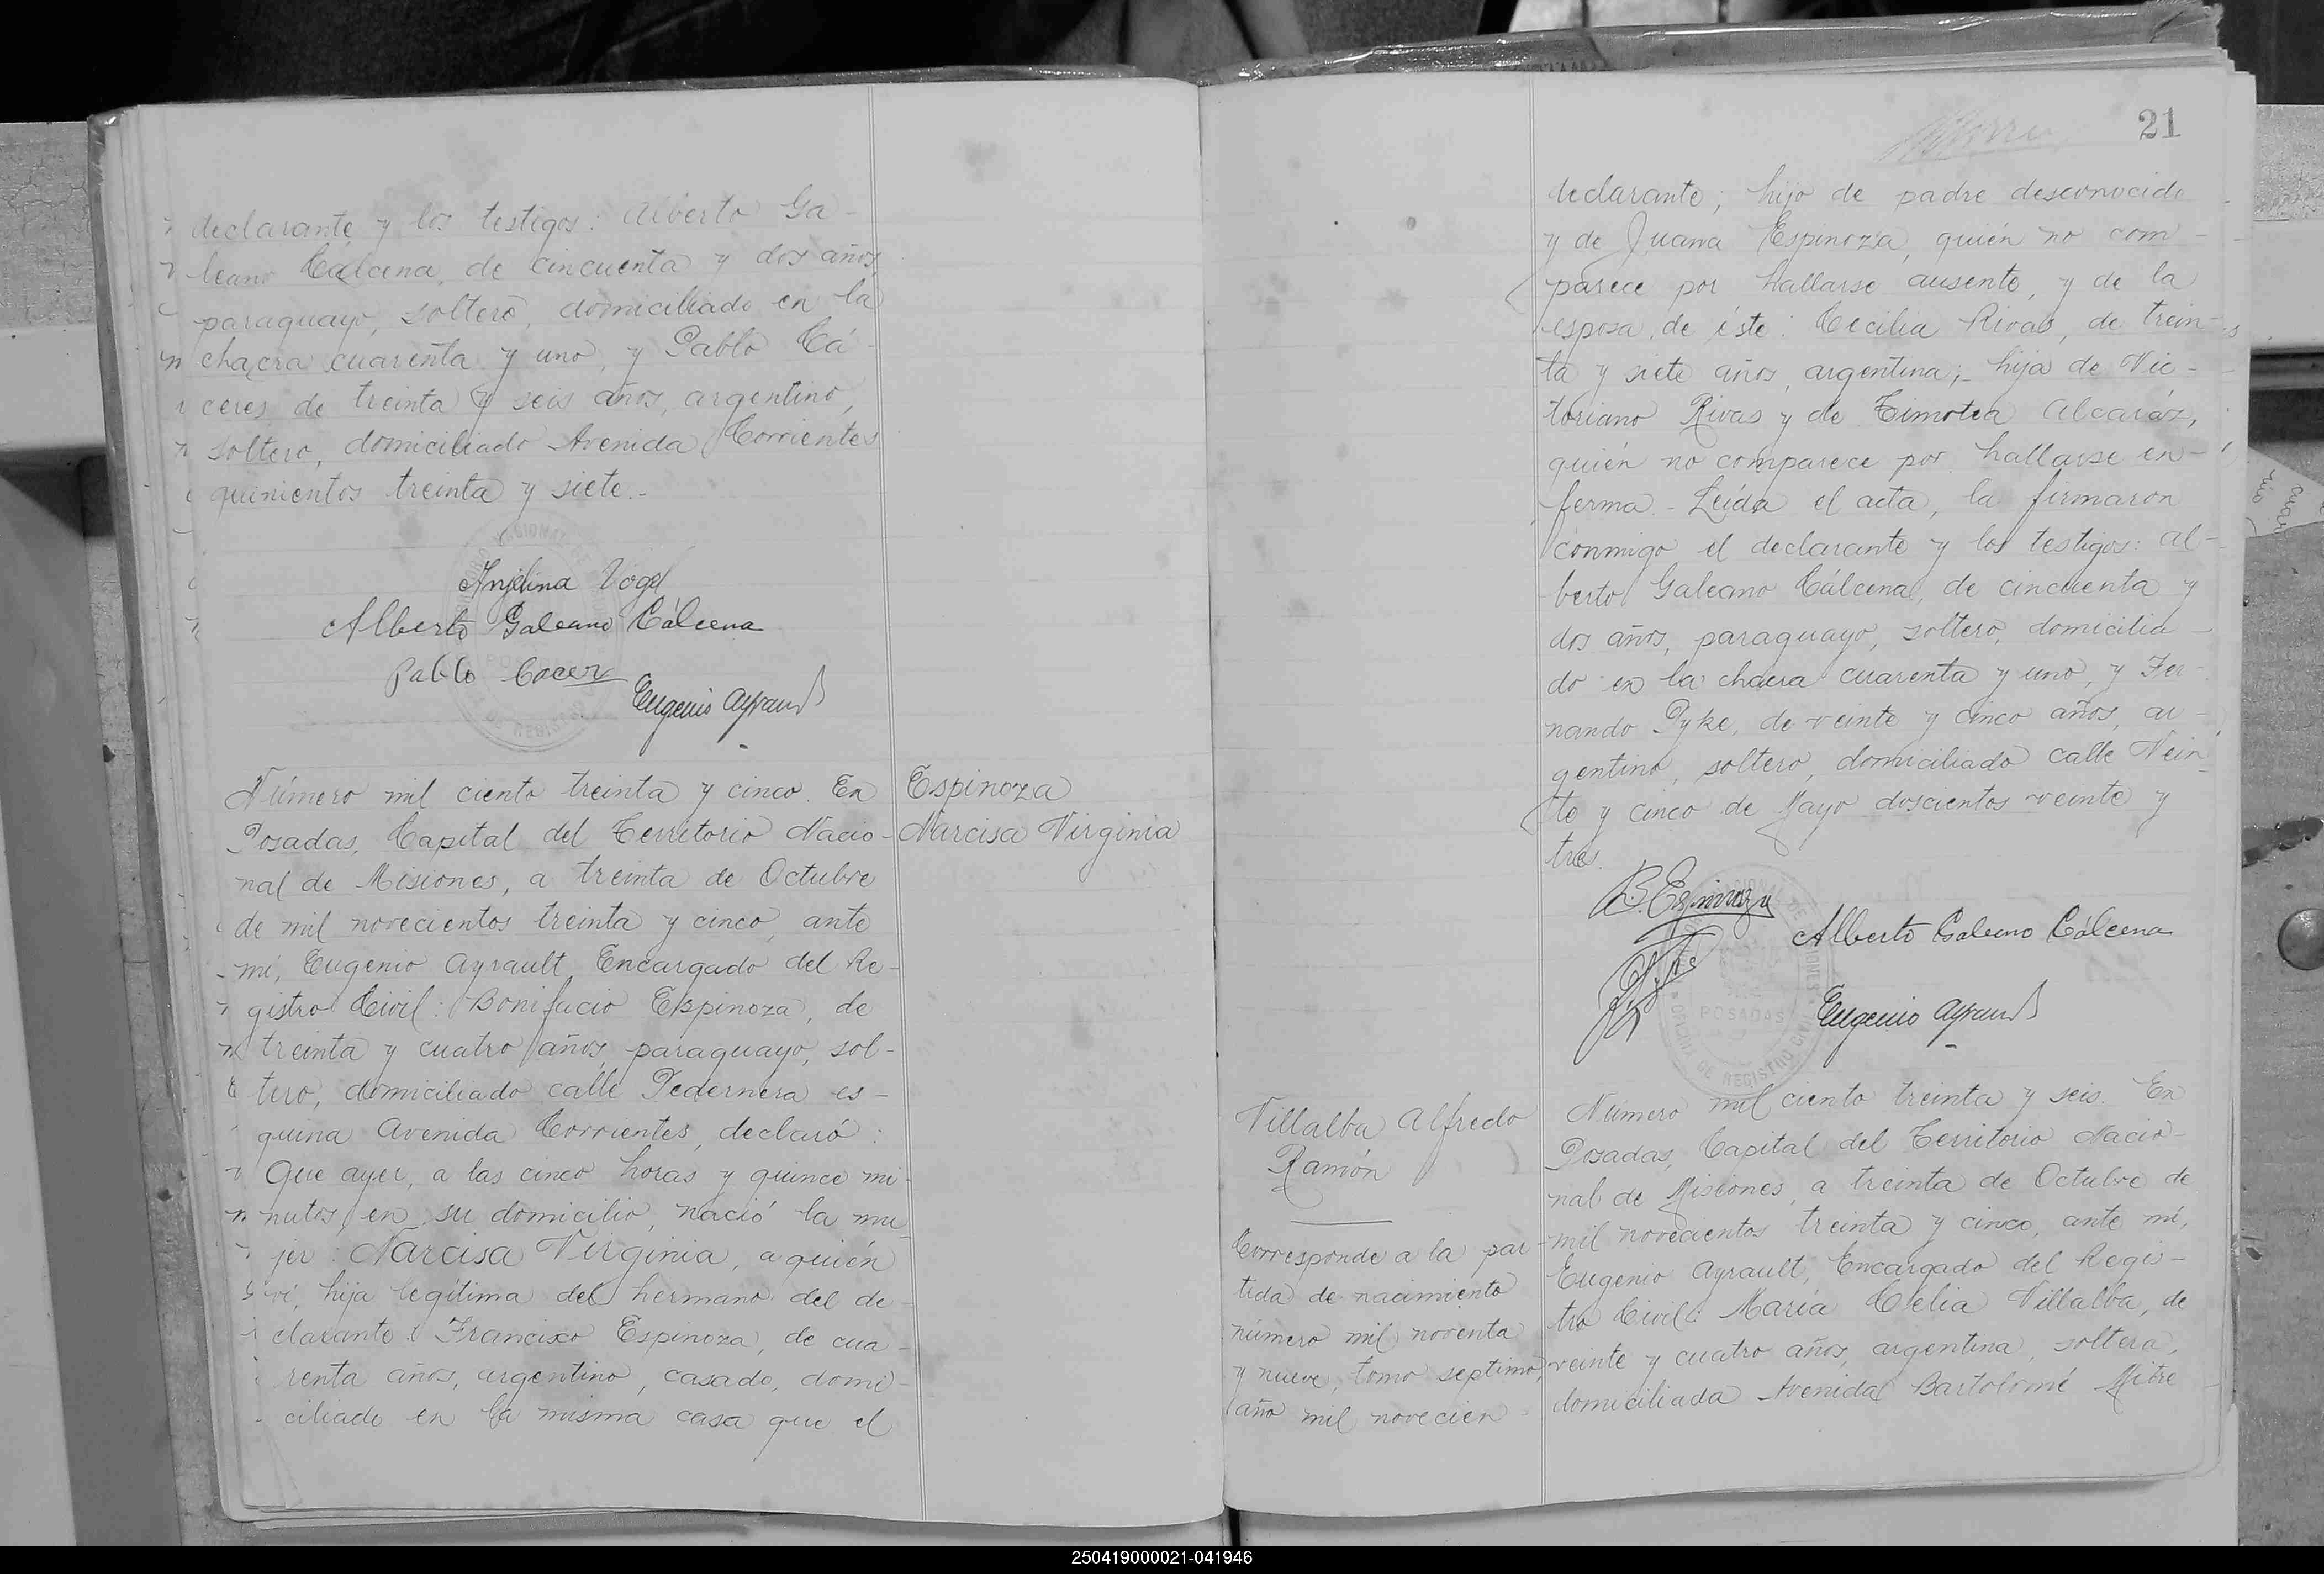 declarante y los testigos: Alberto Ga-
leano Cálcena, de cincuenta y dos años,
paraguayo, soltero, domiciliado en la
chacra cuarenta y uno, y Pablo Cá-
ceres, de treinta y seis años, argentino,
soltero, domiciliado Avenida Corrientes
quinientos treinta y siete.-
Anjelina Vogel
Alberto Galeano Cálcena
Pablo Cacer
Eugenio Ayrault
Número mil ciento treinta y cinco. En
Posadas, Capital del Territorio Nacio-
nal de Misiones, a treinta de Octubre
de mil novecientos treinta y cinco, ante
mí, Eugenio Ayrault, Encargado del Re-
gistro Civil: Bonifacio Espinoza, de
treinta y cuatro años, paraguayo, sol-
tero, domiciliado calle Pedernera es-
quina Avenida Corrientes, declaró:
Que ayer, a las cinco horas y quince mi-
nutos, en su domicilio, nació la mu-
jer: Narcisa Virginia, a quién
ví, hija legítima del hermano del de-
clarante: Francisco Espinoza, de cua-
renta años, argentino, casado, domi-
ciliado en la misma casa que el
Espinoza
Narcisa Virginia
21
declarante; hijo de padre desconocido
y de Juana Espinoza, quién no com-
parece por hallarse ausente, y de la
esposa de éste: Cecilia Rivas, de trein-
ta y siete años, argentina; hija de Vic-
toriano Rivas y de Timotea Alcaráz,
quién no comparece por hallarse en-
ferma.- Leída el acta, la firmaron
conmigo el declarante y los testigos: Al-
berto Galeano Cálcena, de cincuenta y
dos años, paraguayo, soltero, domicilia-
do en la chacra cuarenta y uno, y Fer-
nando Pyke, de veinte y cinco años, ar-
gentino, soltero, domiciliado calle Vein-
te y cinco de Mayo doscientos veinte y
tres.
B. Espinoza
Alberto Galeano Cálcena
Eugenio Ayrault
POSADAS
Villalba Alfredo
Ramón
Corresponde a la par-
tida de nacimiento
número mil noventa
y nueve, tomo septimo,
año mil novecien-
Número mil ciento treinta y seis. En
Posadas, Capital del Territorio Nacio-
nal de Misiones, a treinta de Octubre de
mil novecientos treinta y cinco, ante mí,
Eugenio Ayrault, Encargado del Regis-
tro Civil: María Celia Villalba, de
veinte y cuatro años, argentina, soltera,
domiciliada Avenida Bartolomé Mitre
250419000021-041946